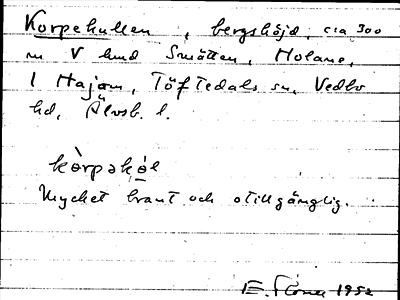 Korpekullen, bergshöjd, c:a 300
m V hmd Smätten, Holane,
1 Hajom, Töftedals sn, Vedbo
hd, Älvsb. l.
kòrpəkọ́l
Mycket brant och otillgänglig.
1952